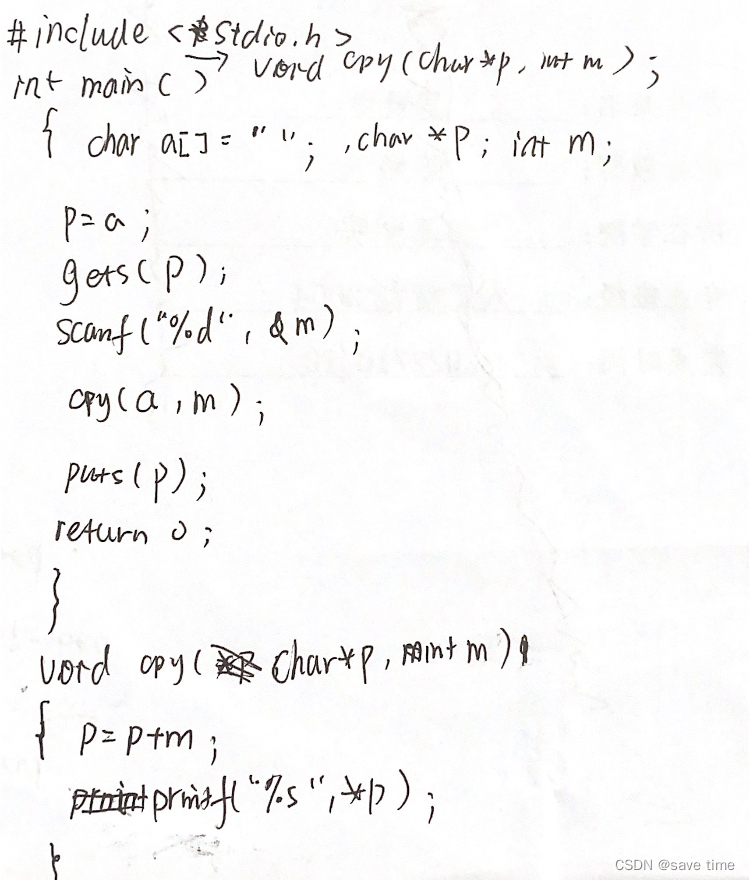 #include <stdio.h>
→ void cpy(char*p, int m);
int main( )
{ char a[]=" "; ,char *p; int m;
p=a;
gets(p);
scanf("%d", &m);
cpy(a,m);
puts(p);
return 0;
}
void cpy(char*p, int m)
{ p=p+m;
printf("%s",*p);
}
CSDN @save time